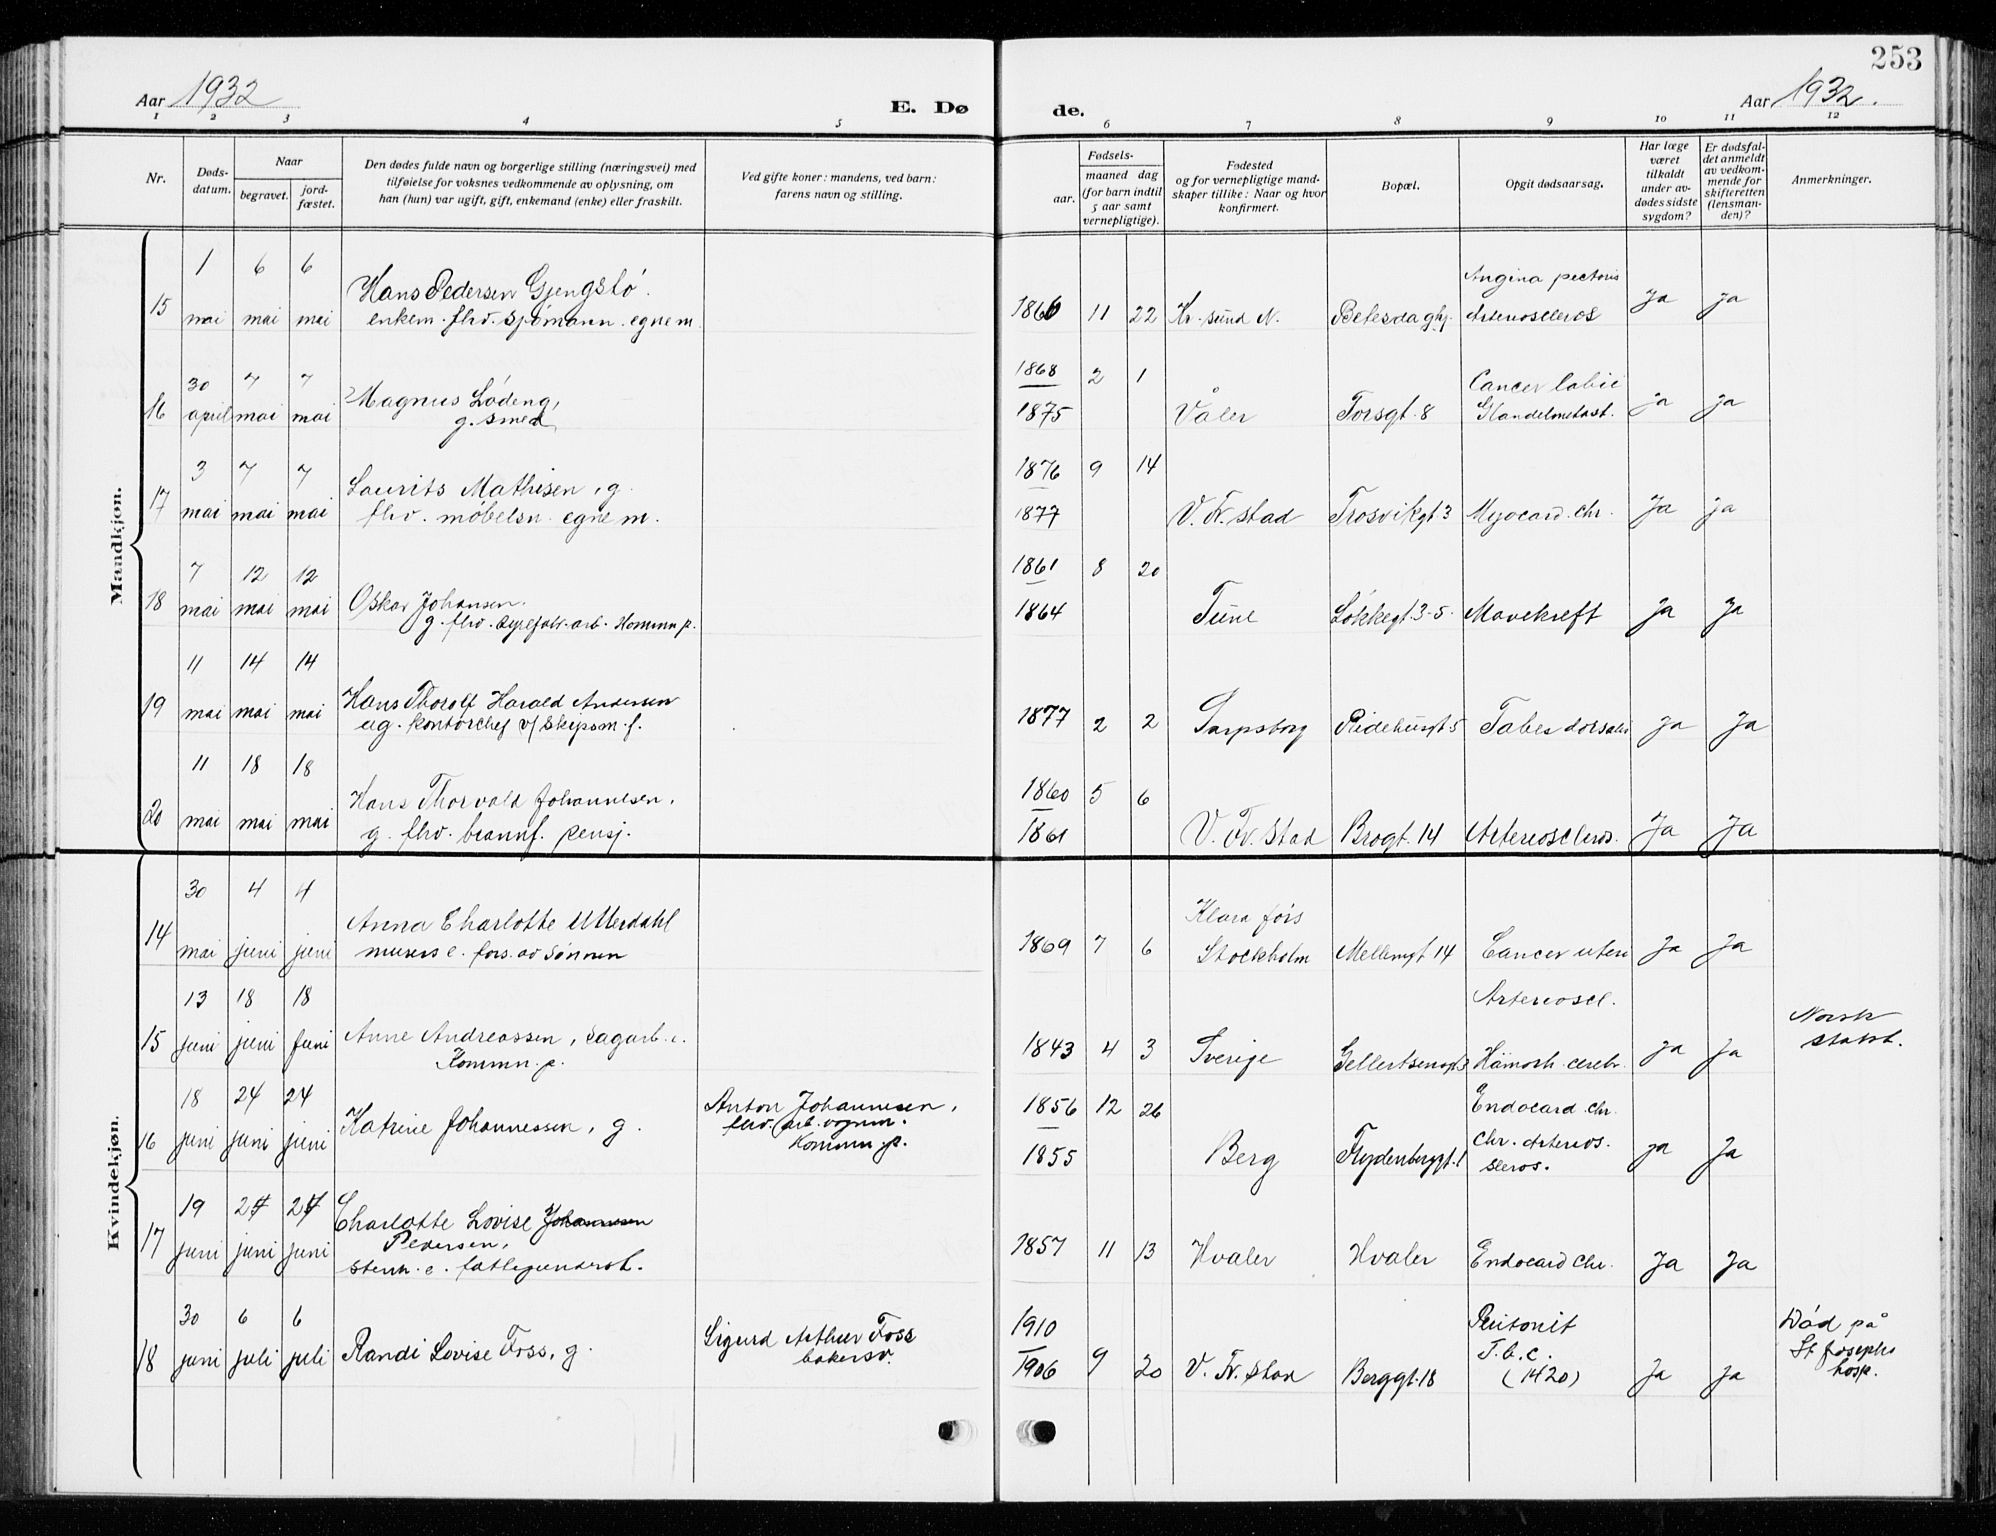 253
Aar 1932
E. Dø
de.
Aar 1932.
1 2 3 4 5 6 7 8 9 10 11 12
Nr.
Døds-
datum.
Naar
begravet.
jord-
fæstet.
Den dødes fulde navn og borgerlige stilling (næringsvei) med
tilføielse for voksnes vedkommende av oplysning, om
han (hun) var ugift, gift, enkemand (enke) eller fraskilt.
Ved gifte koner: mandens, ved barn:
farens navn og stilling.
Fødsels-
aar.
maaned dag
(for barn indtil
5 aar samt
vernepligtige).
Fødested
og for vernepligtige mand-
skaper tillike: Naar og hvor
konfirmert.
Bopæl.
Opgit dødsaarsag.
Har læge
været
tilkaldt
under av-
dødes sidste
sygdom?
Er dødsfal-
det anmeldt
av vedkom-
mende for
skifteretten
(lensman-
den)?
Anmerkninger.
Mandkjøn.
1 6 6
Hans Pedersen Gjengstø.
Angina pectoris
15 mai mai mai enkem. fhv. sjømann. egne m. 1866 11 22 Kr. sund N. Betesda Arterioscleros Ja Ja
30 7 7
Magnus Lødeng,
1868 2 1 Cancer labii
16 april mai mai g. smed 1875 Våler Torsgt. 8 Glandelmetast. ja ja
3 7 7
Laurits Mathisen, g.
1876 9 14
17 mai mai mai fhv. møbelsn. egne m. 1877 V. Fr. stad Trosvikgt 3 Myocard. chr. Ja ja
7 12 12
1861 8 20
18 mai mai mai Oskar Johansen. 1864 Tune Løkkegt. 3-5. Mavekreft Ja Ja
g. fhv. arb. Kommn p.
11 14 14
Hans Thorolf Harald Andersen
19 mai mai mai ug. kontorchef v/ Skipsm. f. 1877 2 2 Sarpsborg Ridehusgt 5 Tabes dorsalis Ja Ja
11 18 18
Hans Thorvald Johannesen,
1860 5 6
20 mai mai mai g. fhv. brannf. pensj. 1861 V. Fr. stad Brogt. 14 Arterioscleros. Ja Ja
Kvindekjøn.
30 4 4
Klara førs
Anna Charlotte Utterdahl
14 mai juni juni murers e. fors. av sønnen 1869 7 6 Stockholm Mellemgt 14 Cancer uteri Ja Ja
13 18 18
Arterioscl.
Norsk
15 juni juni juni Anne Andreassen, sagarb. e. 1843 4 3 Sverige Gellertsensgt 3 Hämorh. cerebr. Ja Ja statsb.
Kommn. p.
18 24 24
Anton Johannesen,
1856 12 26 Endocard. chr.
16 juni juni juni Katrine Johannessen, g. fhv. arb. vognm. 1855 Berg Flydenberggt. 1 Chr. Arterios- ja Ja
Kommn p. sleros.
19 24 24
Charlotte Lovise Johannesen
17 juni juni juni Pedersen, 1857 11 13 Hvaler Hvaler Endocard chr. Ja Ja
stenh. e. fattigunderst.
30 6 6
Sigurd Arthur Foss
1910 Peritonit Død på
18 juni juli juli Randi Lovise Foss, g. bakersv. 1906 9 20 V. Fr. stad Berggt. 18 T.b.c. Ja Ja St Josephs
(1420) hosp.